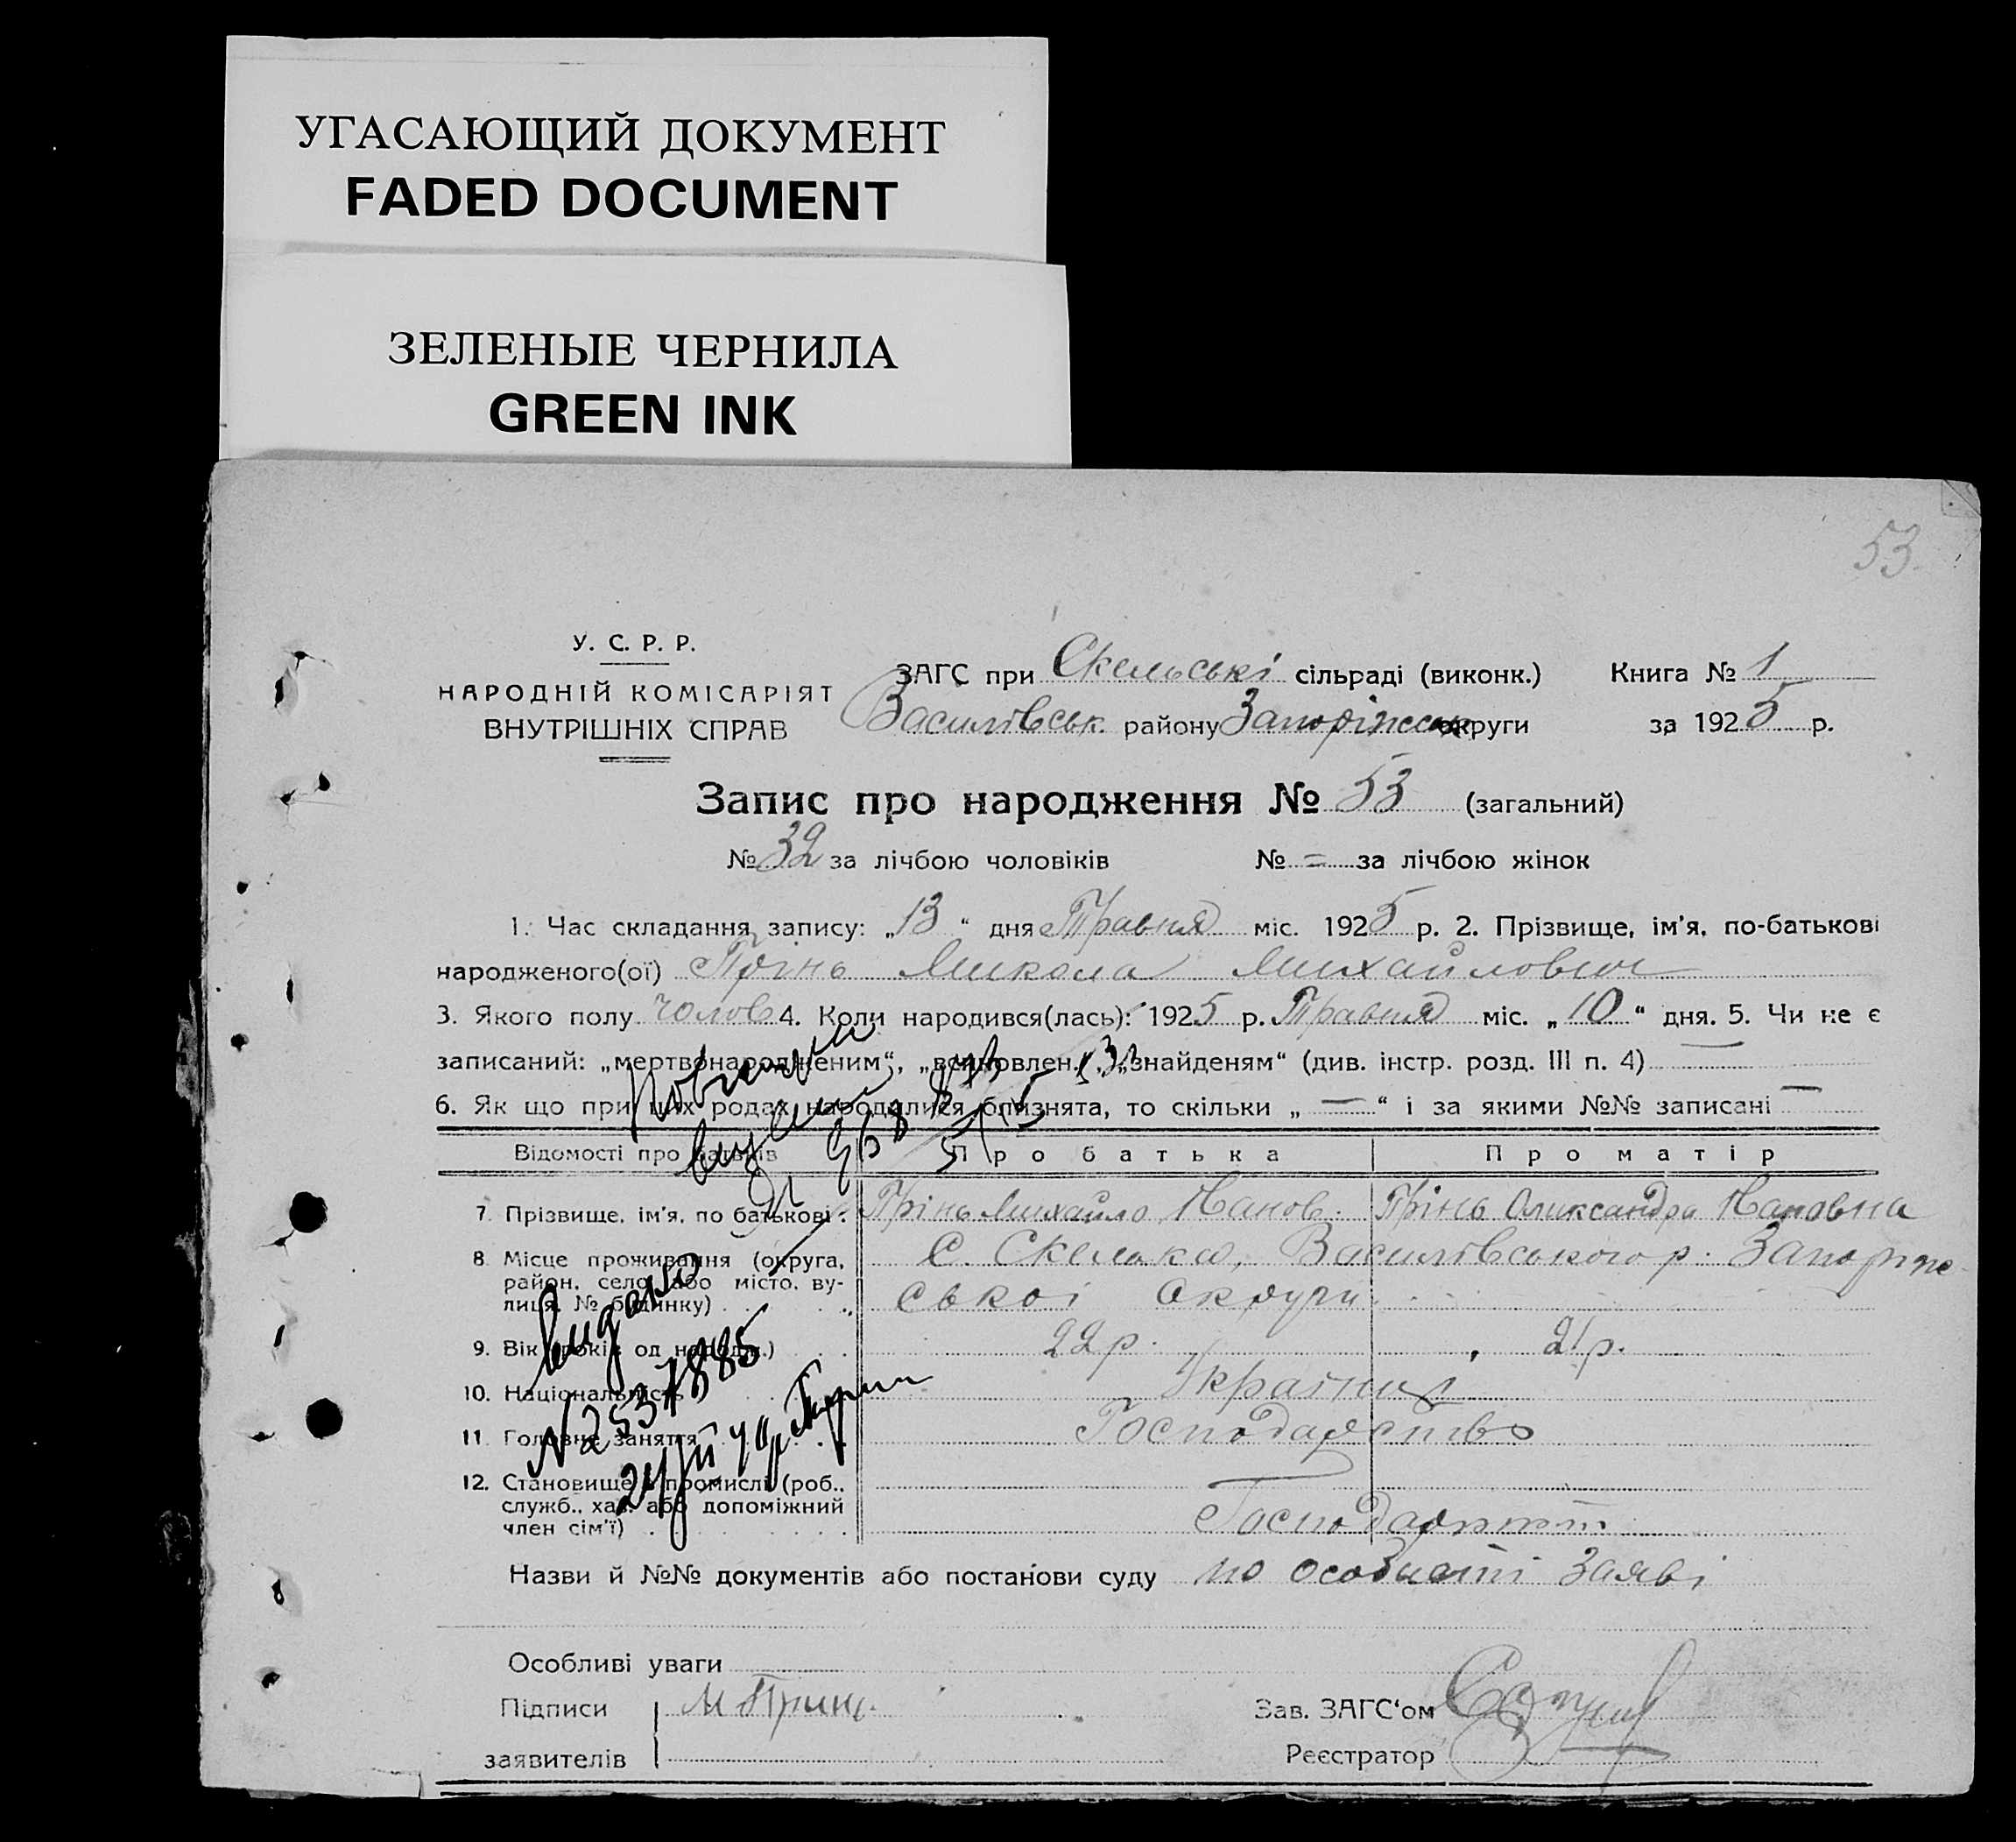 УГАСАЮЩИЙ ДОКУМЕНТ
FADED DOCUMENT
ЗЕЛЕНЫЕ ЧЕРНИЛА
GREEN INK
53
У. С. Р. Р.
НАРОДНІЙ КОМІСАРІЯТ
ВНУТРІШНІХ СПРАВ
ЗАГС при Скельські сільраді (виконк.) Книга № 1
Василівськ. району Запоріжськ округи за 1925 р.
Запис про народження № 53 (загальний)
№ 32 за лічбою чоловіків № = за лічбою жінок
1. Час складання запису: „13“ дня Травня міс. 1925 р. 2. Прізвище, ім'я, по-батькові
народженого(ої) Грінь Микола Михайлович
3. Якого полу Чолов 4. Коли народився(лась): 1925 р. Травня міс. „10“ дня. 5. Чи не є
записаний: „мертвонародженим“, „всиновлен.“, „знайденям“ (див. інстр. розд. III п. 4) —
6. Як що при цих родах народилися близнята, то скільки „—“ і за якими №№ записані —
Відомості про батьків Про батька Про матір
7. Прізвище, ім'я, по батькові: Грінь Михайло Іванов. Грінь Олександра Івановна
8. Місце проживання (округа, район, село або місто, вулиця, № будинку) с. Скелька, Василівського р. Запоріж
ської округи
9. Вік (років од народж.) 22 р. 21 р.
10. Національність Українці
11. Головне заняття Господарство
12. Становище в промислі (роб., служб., хаз. або допоміжний член сім'ї) Господар
Видано
№ 2537885
Назви й №№ документів або постанови суду по особисті заяві
Особливі уваги
Підписи М Гринь
заявителів
Зав. ЗАГС'ом
Реєстратор